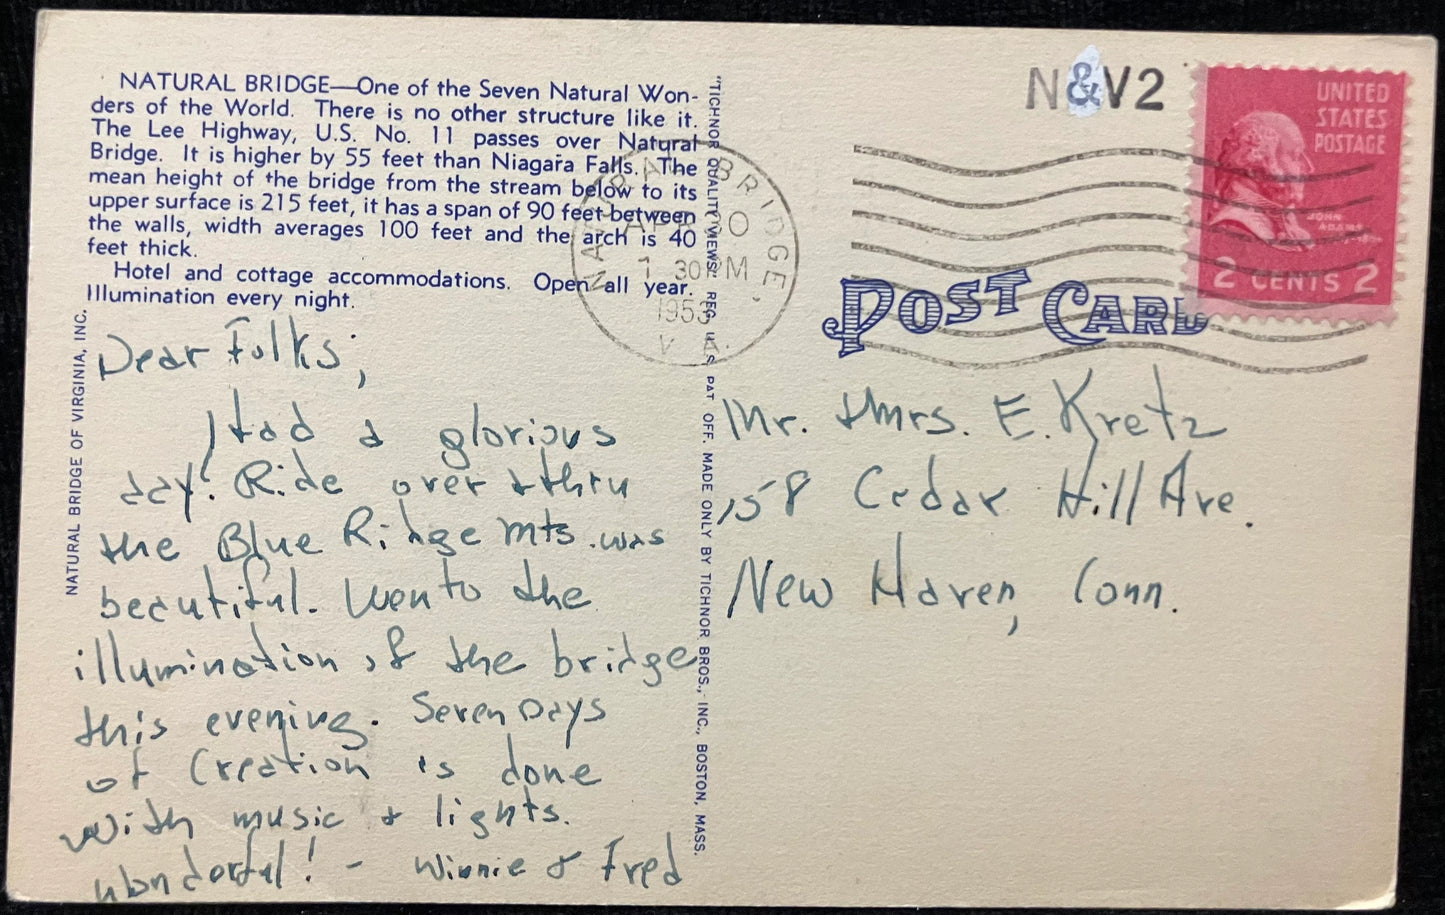 NATURAL BRIDGE—One of the Seven Natural Won-
ders of the World. There is no other structure like it.
The Lee Highway, U.S. No. 11 passes over Natural
Bridge. It is higher by 55 feet than Niagara Falls. The
mean height of the bridge from the stream below to its
upper surface is 215 feet, it has a span of 90 feet between
the walls, width averages 100 feet and the arch is 40
feet thick.
Hotel and cottage accommodations. Open all year.
Illumination every night.
NATURAL BRIDGE OF VIRGINIA, INC.
Dear Folks;
Had a glorious
day! Ride over & thru
the Blue Ridge Mts. was
beautiful. Went to the
illumination of the bridge
this evening. Seven Days
of Creation is done
with music & lights.
Wonderful! - Winnie & Fred
"TICHNOR QUALITY VIEWS," REG. U. S. PAT. OFF. MADE ONLY BY TICHNOR BROS., INC., BOSTON, MASS.
NATURAL BRIDGE,
APR
7 30 PM
1953
VA.
N&V2
UNITED
STATES
POSTAGE
JOHN
ADAMS
2 CENTS 2
POST CARD
Mr. & Mrs. E. Kretz
158 Cedar Hill Ave.
New Haven, Conn.